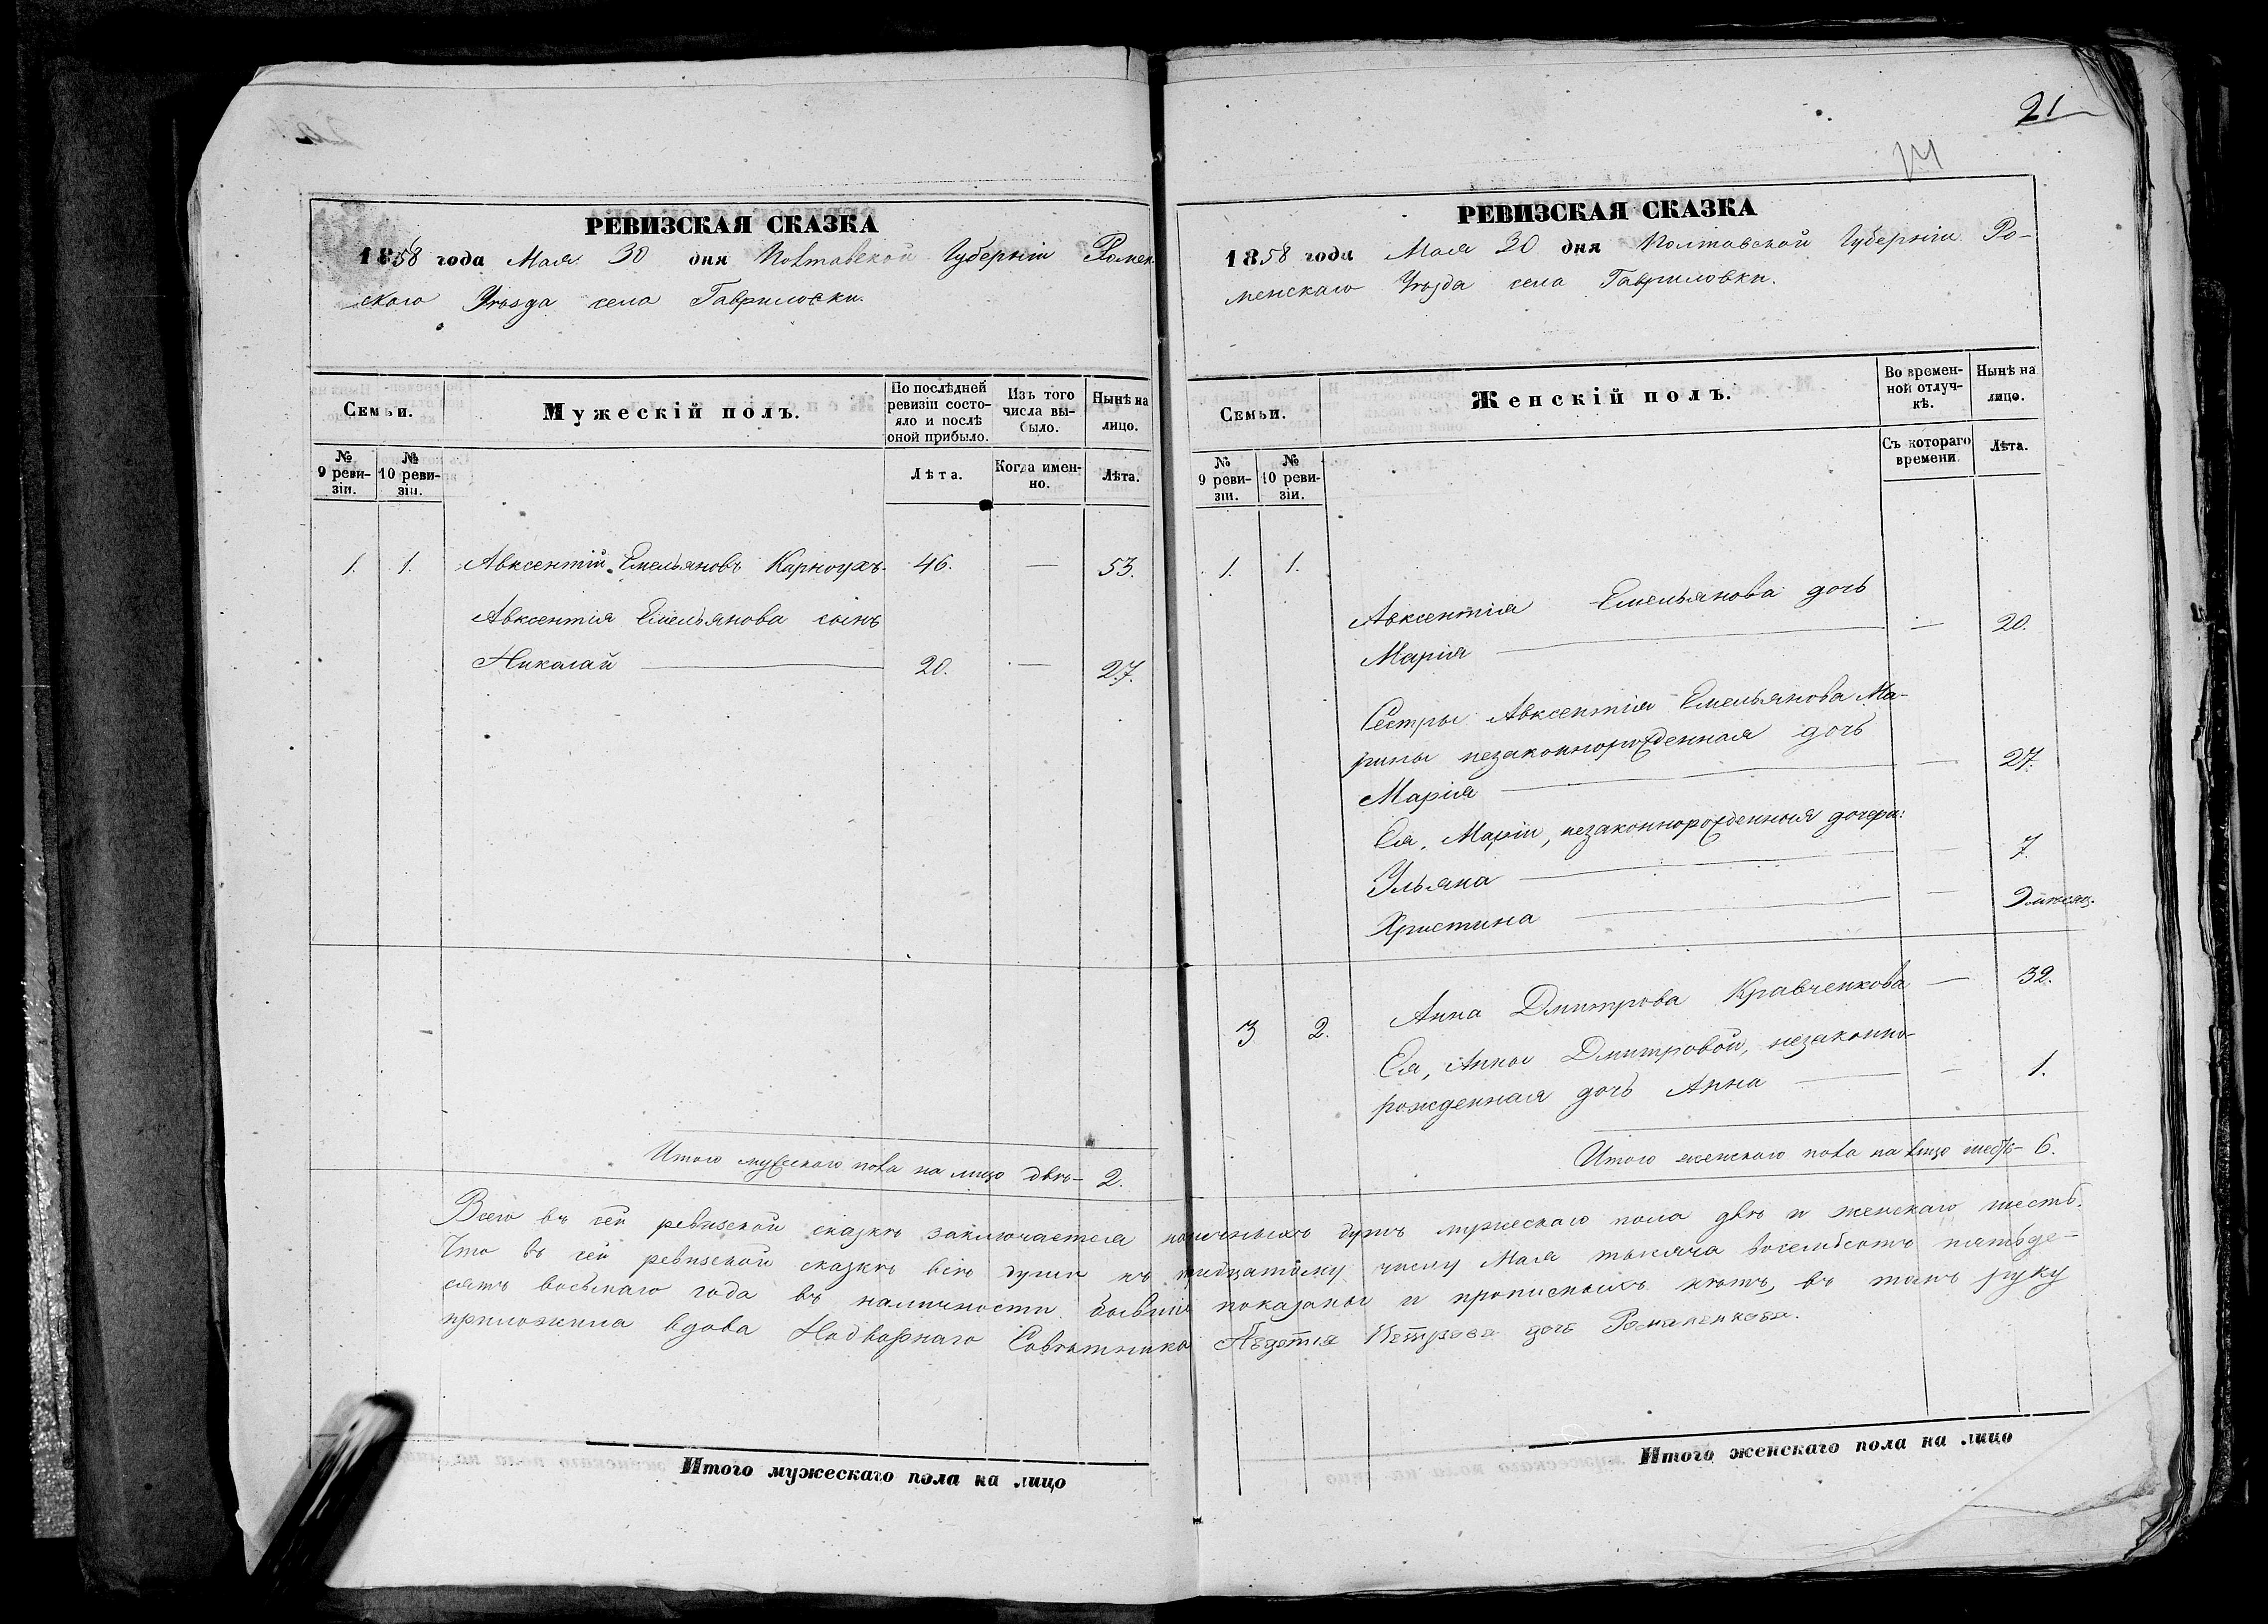 РЕВИЗСКАЯ СКАЗКА
1858 года Мая 30 дня Полтавской Губерніи Ромен-
скаго Уѣзда села Гавриловки.
Семьи.
Мужескій полъ.
По послѣдней
ревизіи состо-
яло и послѣ
оной прибыло.
Изъ того
числа вы-
было.
Нынѣ на
лицо.
№
9 реви-
зіи.
№
10 реви-
зіи.
Лѣта.
Когда имен-
но.
Лѣта.
1. 1. Авксентій Емельяновъ Карноухъ. 46. — 53.
Авксентія Емельянова сынъ
Николай — 20. — 27.
Итого мужескаго пола на лицо двѣ — 2.
21
РЕВИЗСКАЯ СКАЗКА
1858 года Мая 30 дня Полтавской Губерніи Ро-
менскаго Уѣзда села Гавриловки.
Семьи.
Женскій полъ.
Во времен-
ной отлуч-
кѣ.
Нынѣ на
лицо.
№
9 реви-
зіи.
№
10 реви-
зіи.
Съ котораго
времени.
Лѣта.
1. 1.
Авксентія Емельянова дочь
Марія — — 20.
Сестры Авксентія Емельянова Ма-
рины незаконнорожденная дочь
Марія — — 27.
Ея, Маріи, незаконнорожденныя дочери:
Ульяна — — 7.
Христина — — 9 мѣсяц.
3 2. Анна Дмитрова Кравченкова — 32.
Ея, Анны Дмитровой, незаконно-
рожденная дочь Анна — — 1.
Итого женскаго пола на лицо шесть — 6.
Всего въ сей ревизской сказкѣ заключается наличныхъ душъ мужескаго пола двѣ и женскаго шесть.
Что въ сей ревизской сказкѣ всѣ души къ тридцатому числу Мая тысяча восемьсотъ пятьде-
сятъ восьмаго года въ наличности бывшія показаны и прописныхъ нѣтъ, въ томъ руку
приложила вдова Надворнаго Совѣтника Петрова дочь Романенкова.
Итого мужескаго пола на лицо
Итого женскаго пола на лицо